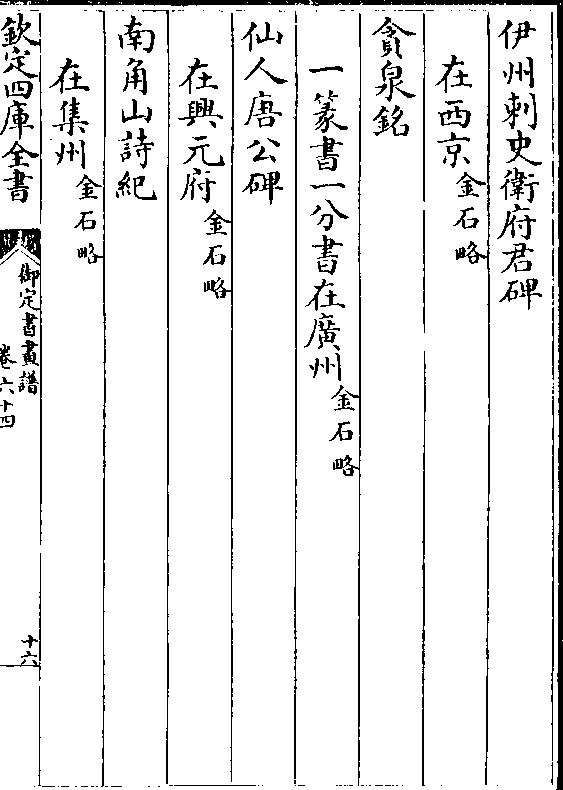 伊州刺史衛府君碑
在西京金石略
貪泉銘
一篆書一分書在廣州金石略
仙人唐公碑
在興元府金石略
南角山詩紀
在集州金石略
欽定四庫全書
御定書畫譜
卷六十四
十六